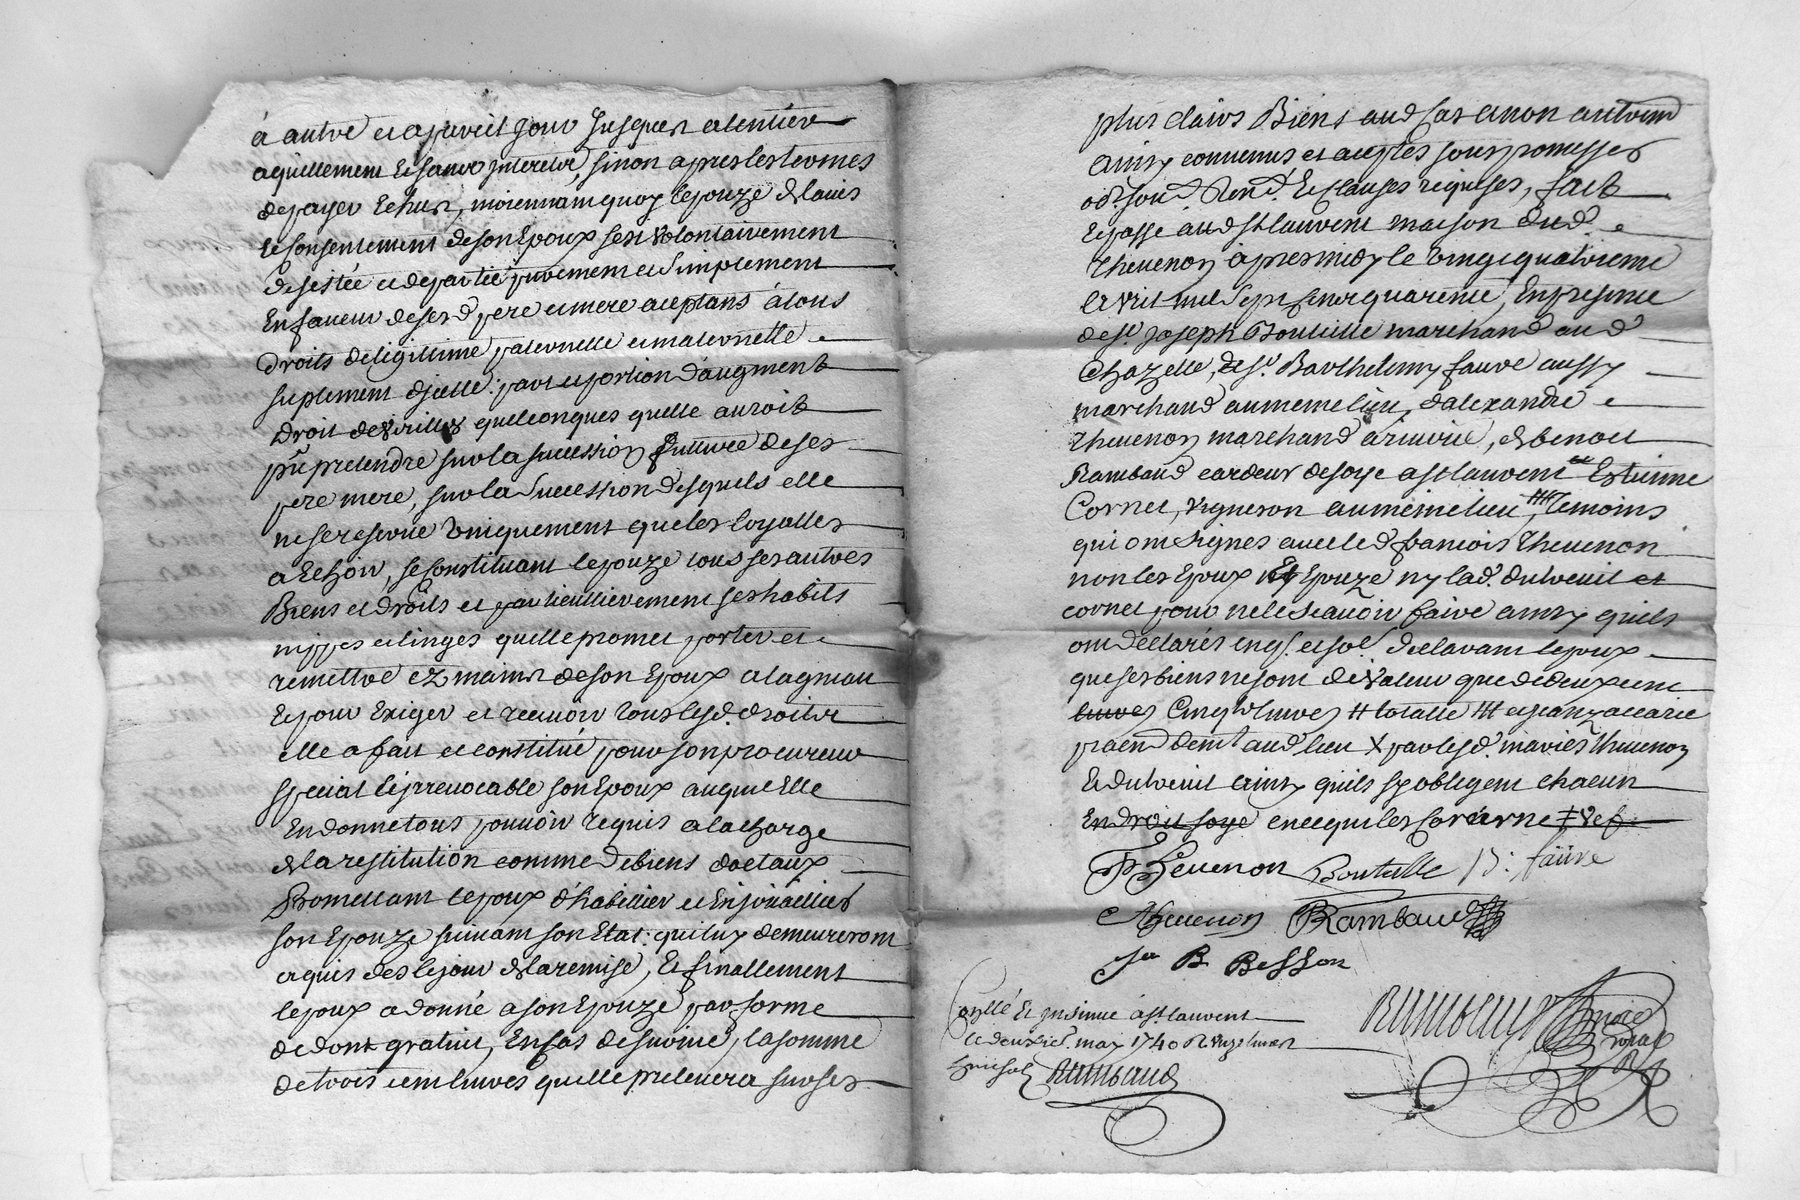 à autre et a pareil jour Jusques a lentier
aquittement Et sans Interets, sinon apres les termes
de payer Echus, moiennant quoy lepouze de lavis
Et Consentement de son Epoux sest volontairement
desistée et departie purement et simplement
En faveur de sesd pere et mere aceptans à tous
droits de legittime paternelle et maternelle
suplement djcelle: part et portion daugment
droit de virille quelconques quelle auroit
pû pretendre sur la succession future de ses
pere mere, sur la succession desquels elle
ne se reserve Uniquement que les loyalles
a Echoir, se Constituant lepouze tous ses autres
Biens et droits et particullierement ses habits
nippes et linges quelle promet porter et
remettre ez mains de son Epoux a lagneau
Et pour Exiger et recevoir tous lesd. droits
elle a fait et constitué pour son procureur
special Et jrrevocable son Epoux auquel Elle
En donne tous pouvoir requis a la charge
de la restitution comme de biens doetaux
Promettant lepoux dhabillier et Enjoüaillier
son Epouze suivant son Etat: qui luy demeureront
aquis des le jour de la remise, Et finallement
lepoux a donné a son Epouze par forme
de dont gratuit, En Cas de survie, la somme
de trois cent livres quelle prelevera sur ses
plus clairs Biens aud Cas a non autrem
ainsy convenus et aceptés sous promesses
obs. soud. Rend. Et Clauses requises, fait
Et passé aud st laurent maison dud.
Thevenon àpres midy le vingt quatrieme
avril mil Sept Cent quarente, En presence
de sr. Joseph Bouteille marchand aud
Chazelle, de sr. Barthelemy faure aussy
marchand au meme lieu, dalexandre
Thevenon marchand a riverie, de benoit
Rambaud cardeur de soye a st laurent et Estienne
Cornet, vigneron au même lieu, temoins
qui ont signes avec led francois Thevenon
non les Epoux Et Epouze ny lad. dutreuil et
cornet pour ne le scavoir faire ainsy quils
ont declarés enq. et so. declarant lepoux
que ses biens ne sont de valeur que de deux cent
livres Cinqte livres # totalle
aud lieu X par lesd. mariés Thevenon
Et dutreuil ainsy quils sy obligent chacun
En droit soye en ce qui les Concerne
Thevenon Boutelle B: faure
A Thevenon Rambaud
B Besson
Conllé Et Insinué à st laurent
Ce deuxie. may 1740
Rambaud
Rambaud No.re
royal